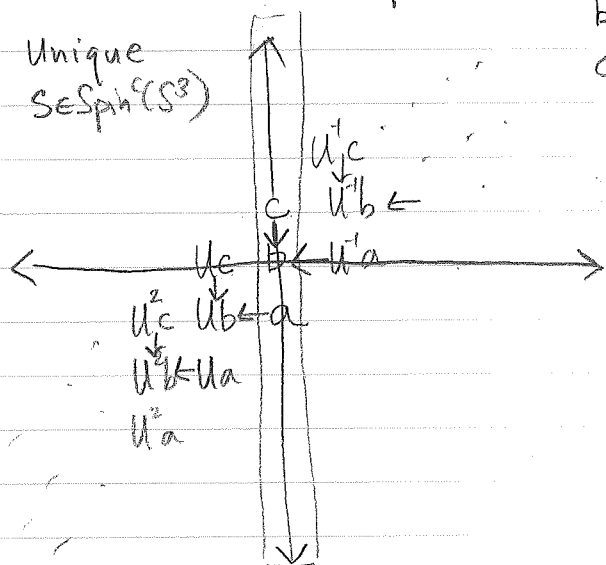 Unique
S∈Spinᶜ(S³)
U⁻¹c
c U⁻¹b ←
Uc b ← U⁻¹a
U²c Ub ← a
U²b ← Ua
U²a